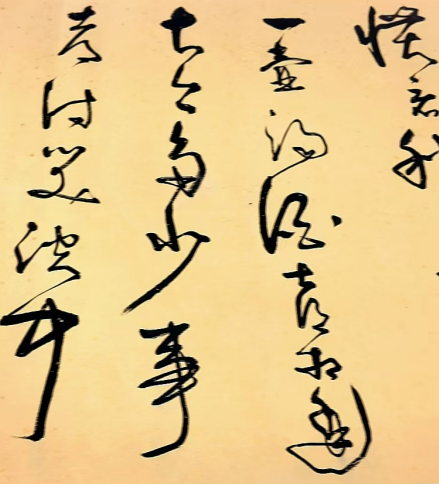 惯看秋
一壶浊酒喜相逢
古今多少事
都付笑谈中